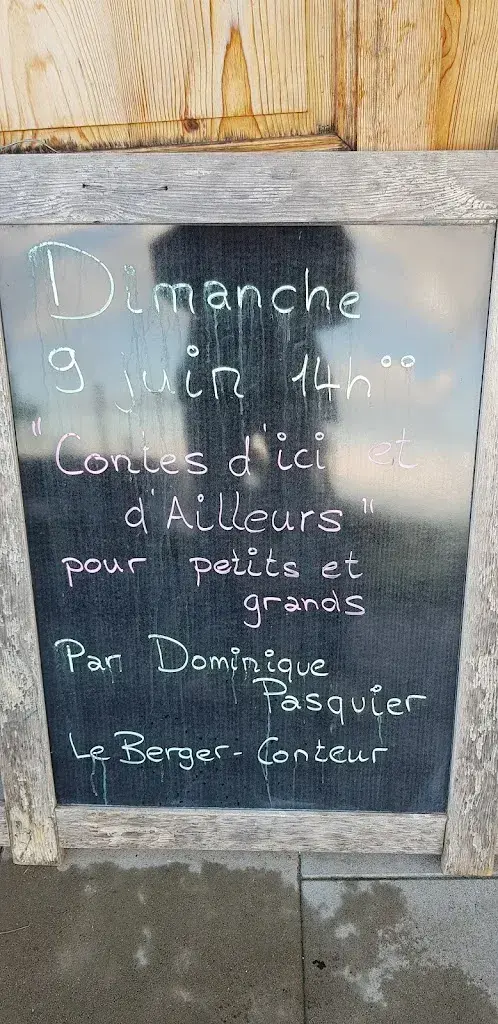 Dimanche
9 juin 14h°°
"Contes d'ici et
d'Ailleurs"
pour petits et
grands
Par Dominique
Pasquier
Le Berger-Conteur